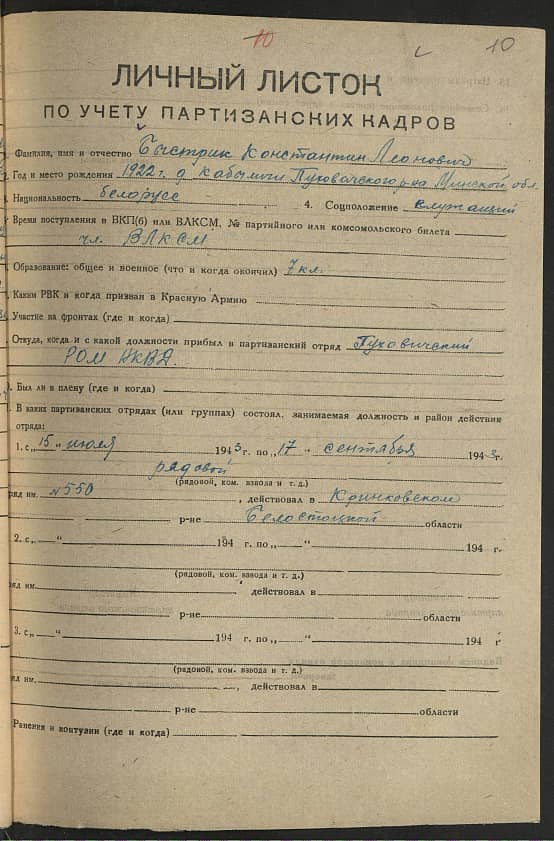 10 10
ЛИЧНЫЙ ЛИСТОК
ПО УЧЕТУ ПАРТИЗАНСКИХ КАДРОВ
Фамилия, имя и отчество Быстрик Константин Леонович
Год и место рождения 1922 г. д. Кабыличи Пуховичского р-на Минской обл.
Национальность белорусс 4. Соцположение служащий
Время поступления в ВКП(б) или ВЛКСМ, № партийного или комсомольского билета
чл. ВЛКСМ
Образование: общее и военное (что и когда окончил) 7 кл.
Каким РВК и когда призван в Красную Армию
Участие на фронтах (где и когда)
Откуда, когда и с какой должности прибыл в партизанский отряд Пуховичский
РОМ НКВД
Был ли в плену (где и когда)
В каких партизанских отрядах (или группах) состоял, занимаемая должность и район действия
отряда:
1. с „15" июля 1943 г. по „17" сентября 1943 г.
рядовой
(рядовой, ком. взвода и т. д.)
ряд им. № 550, действовал в Кринковском
р-не Белостоцкой области
2. с „ " 194 г. по „ " 194 г.
(рядовой, ком. взвода и т. д.)
ряд им. действовал в
р-не области
3. с „ " 194 г. по „ " 194 г
(рядовой, ком. взвода и т. д.)
ряд им. , действовал в
р-не области
Ранения и контузии (где и когда)